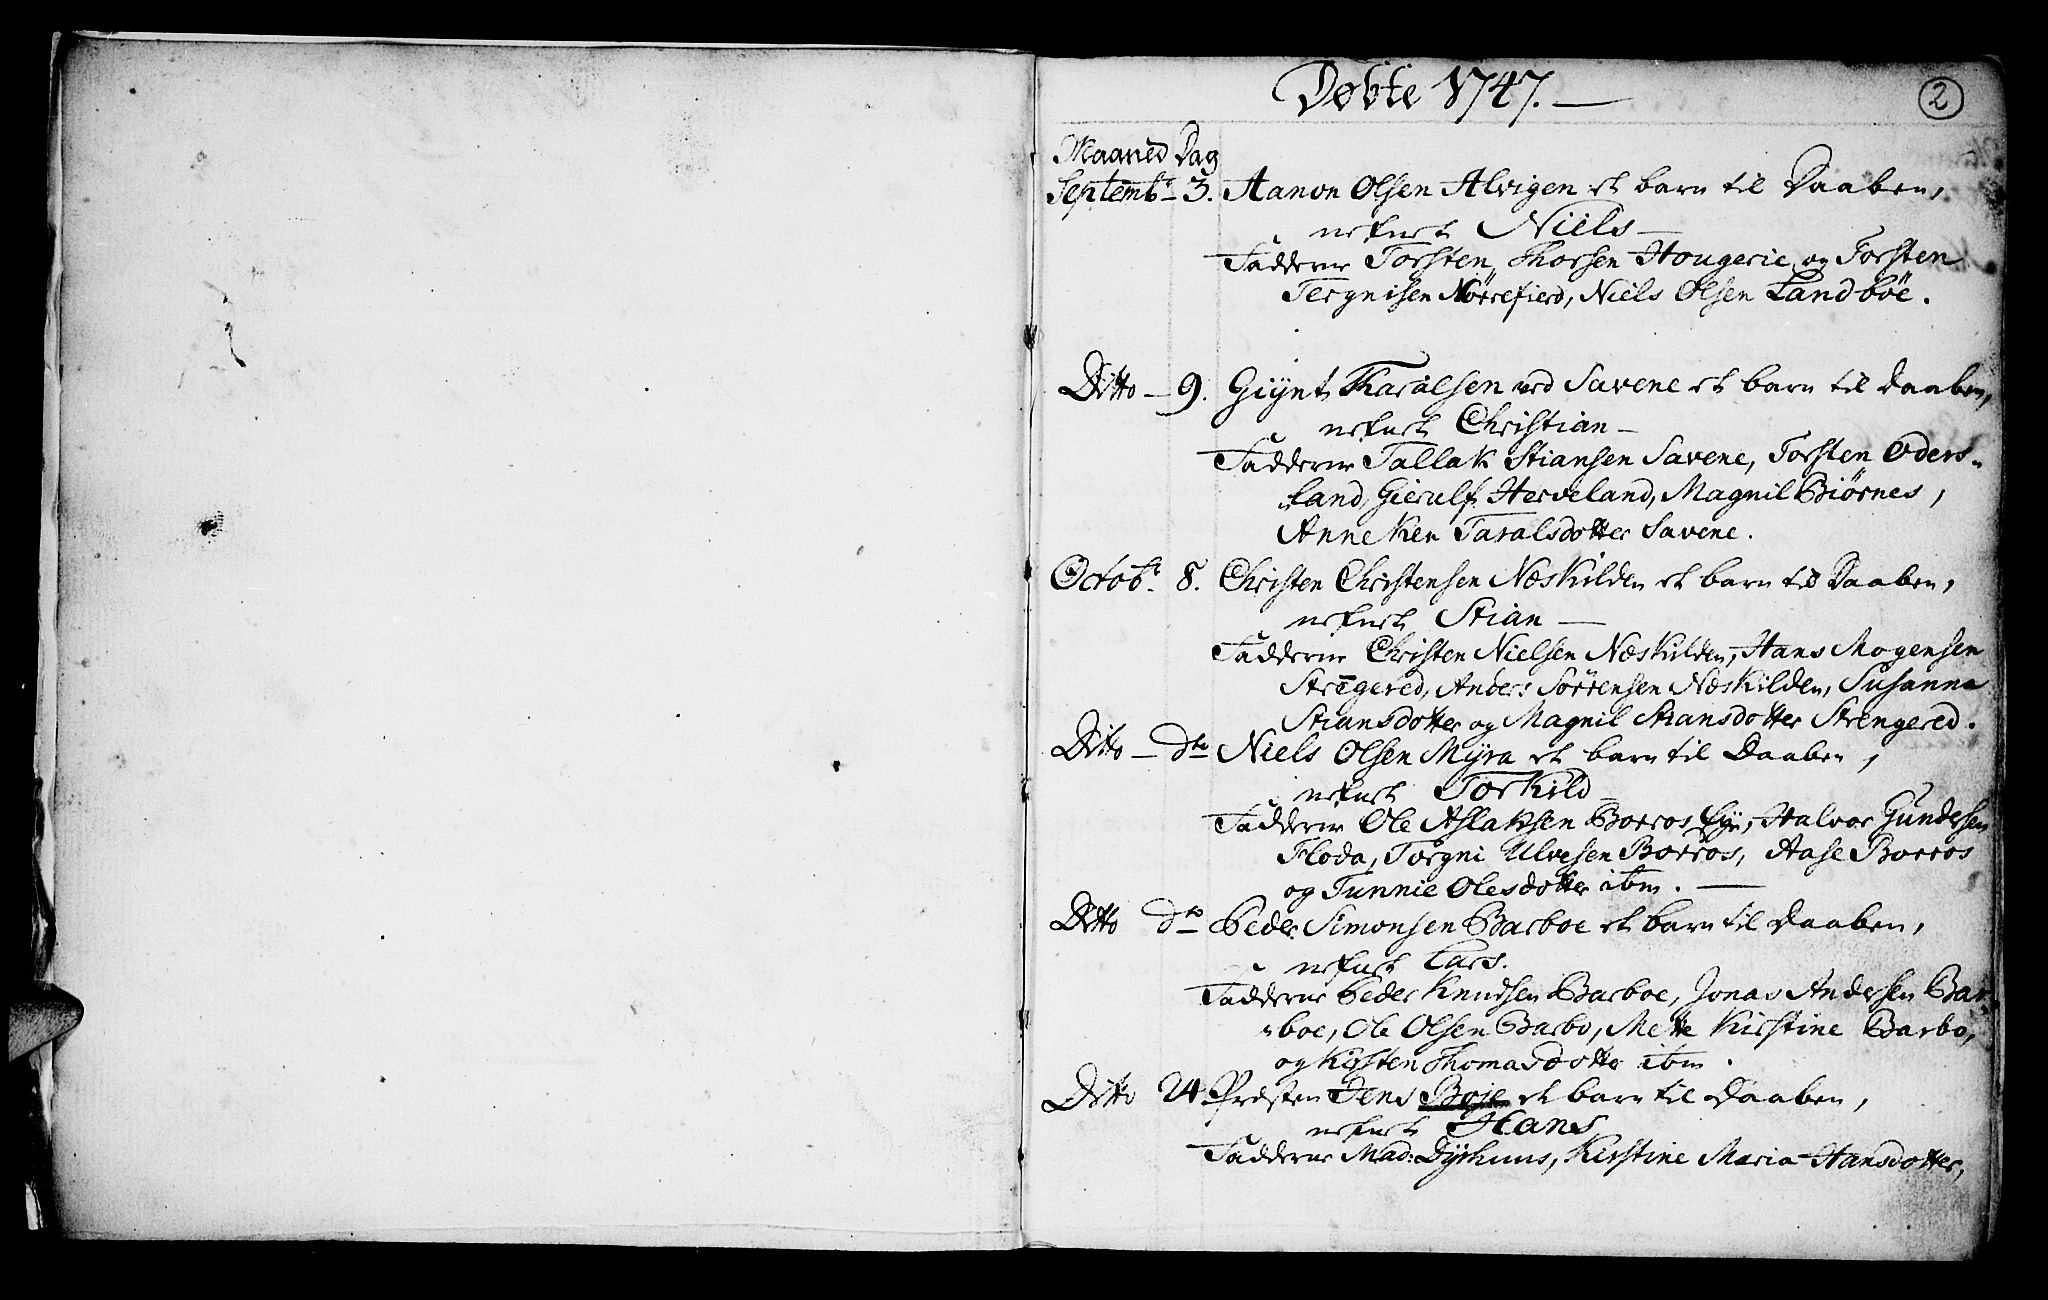 Døbte 1747. —
2
Maaned Dag
Septembr. 3. Aanon Olsen Alvigen et barn til Daaben,
nefnt Niels —
Fadderne Torsten Thorsen Hougerie og Torsten
Tergnisen Nörrefierd, Niels Olsen Landböe.
Ditto — 9. Giÿnt Tharalsen ved Savene et barn til daaben,
nefnt Christian —
Fadderne Tallak Stiansen Savene, Torsten Oders-
land, Gierulf Herveland, Magnil Biörnes,
Anneken Taralsdotter Savene.
Octobr. 8. Christen Christensen Næskilden et barn til Daaben,
nefnt Stian —
Fadderne Christen Nielsen Næskilden, Hans Mogensen
Stregered, Anders Sörrensen Næskilden, Susanna
Stiansdotter og Magnil Stiansdotter Strengered.
Ditto — dto Niels Olsen Mÿra et barn til Daaben,
nefnt Torkild
Fadderne Ole Aslaksen Borros Eÿe, Halvor Gundersen
Floda, Torgni Ulvesen Borros, Aase Borros
og Tunnie Olesdotter ibm. —
Ditto dto Peder Simonsen Barboe et barn til Daaben,
nefnt Lars.
Fadderne Peder Knudsen Barboe, Jonas Andersen Bar-
boe, Ole Olsen Barbo, Mette Kirstine Barbo,
og Kirsten Thomasdotter ibm.
Ditto 24 Præsten Jens Boje et barn til Daaben,
nefnt Hans
Fadderne Mad: Dÿrhuus, Kirstine Maria Hansdotter,